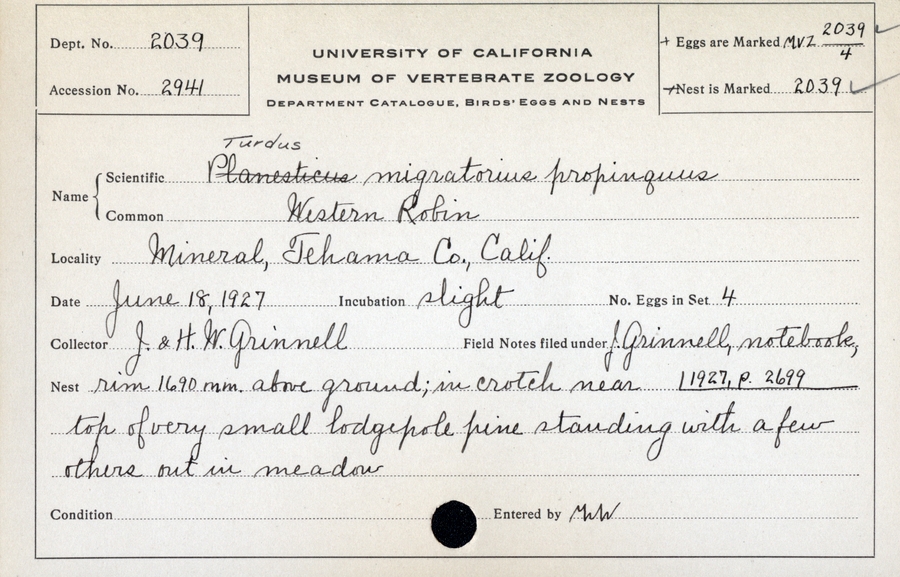 Dept. No. 2039
Accession No. 2941
UNIVERSITY OF CALIFORNIA
MUSEUM OF VERTEBRATE ZOOLOGY
DEPARTMENT CATALOGUE, BIRDS' EGGS AND NESTS
+ Eggs are Marked MVZ 2039/4
+ Nest is Marked 2039
Turdus
Name { Scientific Planesticus migratorius propinquus
Common Western Robin
Locality Mineral, Tehama Co., Calif.
Date June 18, 1927 Incubation slight No. Eggs in Set 4
Collector J. & H. W. Grinnell Field Notes filed under J. Grinnell, notebook,
Nest rim 1690 mm. above ground; in crotch near 1927, p. 2699
top of very small lodgepole pine standing with a few
others out in meadow
Condition Entered by